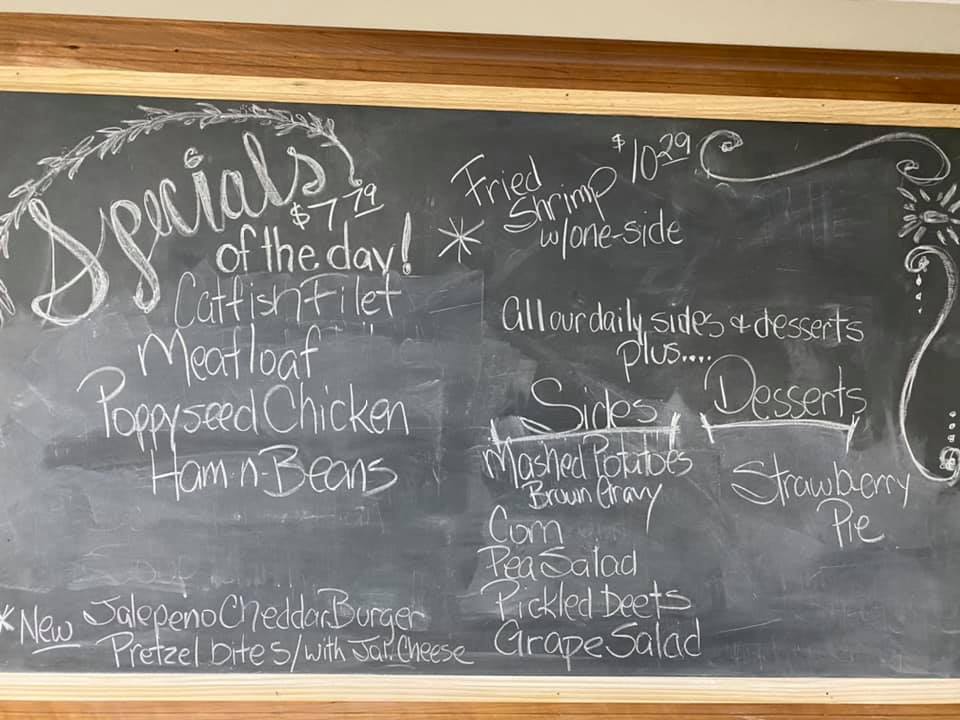 Specials
$7.79
of the day!
Catfish Filet
Meatloaf
Poppyseed Chicken
Ham-n-Beans
* New Jalepeno Cheddar Burger
Pretzel bites/with Jal. Cheese
$10.29
* Fried
Shrimp
w/one-side
All our daily sides & desserts
plus....
Sides
Mashed Potatoes
Brown Gravy
Corn
Pea Salad
Pickled Beets
Grape Salad
Desserts
Strawberry
Pie